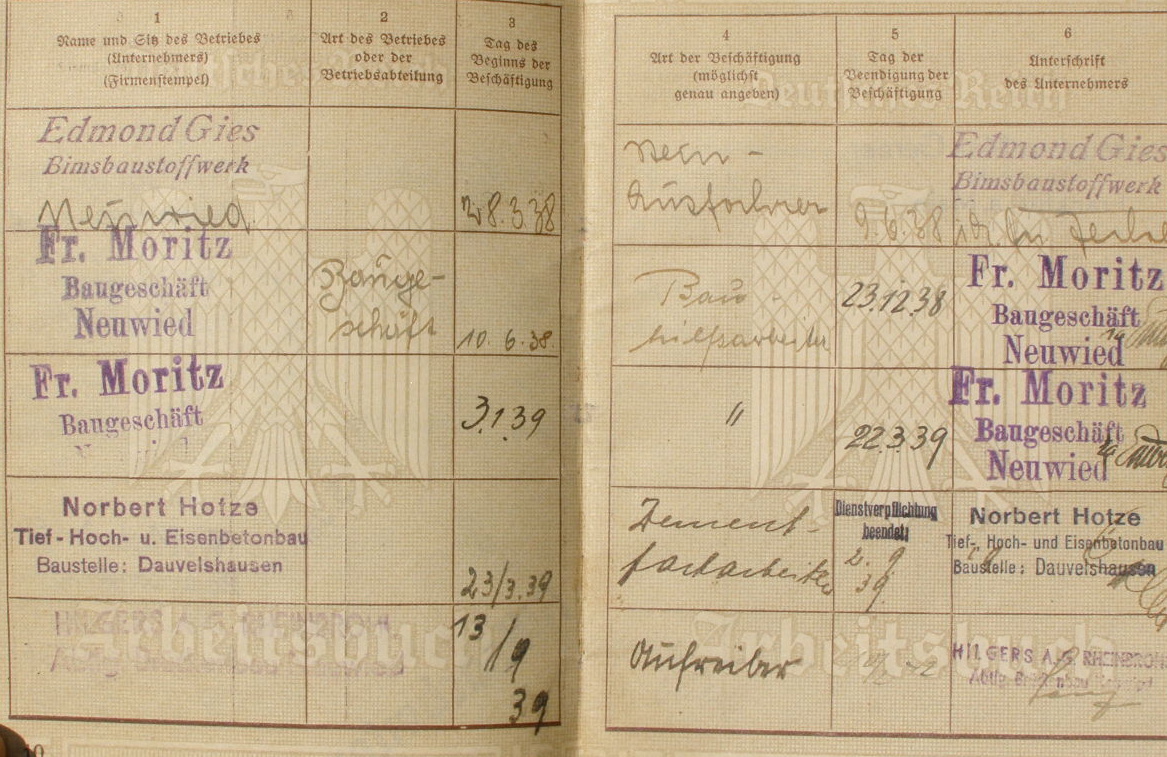 1
Name und Sitz des Betriebes
(Unternehmers)
(Firmenstempel)
2
Art des Betriebes
oder der
Betriebsabteilung
3
Tag des
Beginns der
Beschäftigung
Edmond Gies
Bimsbaustoffwerk
Neuwied
28.3.38
Fr. Moritz
Baugeschäft
Neuwied
Bauge-
schäft
10.6.38.
Fr. Moritz
Baugeschäft
3.1.39
Norbert Hotze
Tief-Hoch- u. Eisenbetonbau
Baustelle: Dauvelshausen
23/3.39
HILGERS A.G. RHEINBROHL
13/9
39
10
4
Art der Beschäftigung
(möglichst
genau angeben)
5
Tag der
Beendigung der
Beschäftigung
6
Unterschrift
des Unternehmers
Deutsches Reich
Ausfahrer
9.6.38
Edmond Gies
Bimsbaustoffwerk
Bau-
hilfsarbeiter
23.12.38
Fr. Moritz
Baugeschäft
Neuwied
"
22.3.39
Fr. Moritz
Baugeschäft
Neuwied
Zement-
facharbeiter
Dienstverpflichtung
beendet:
2.9
39
Norbert Hotze
Tief-, Hoch- und Eisenbetonbau
Baustelle: Dauvelshausen
Aufreiber
HILGERS A.G. RHEINBROHL
Arbeitsbuch